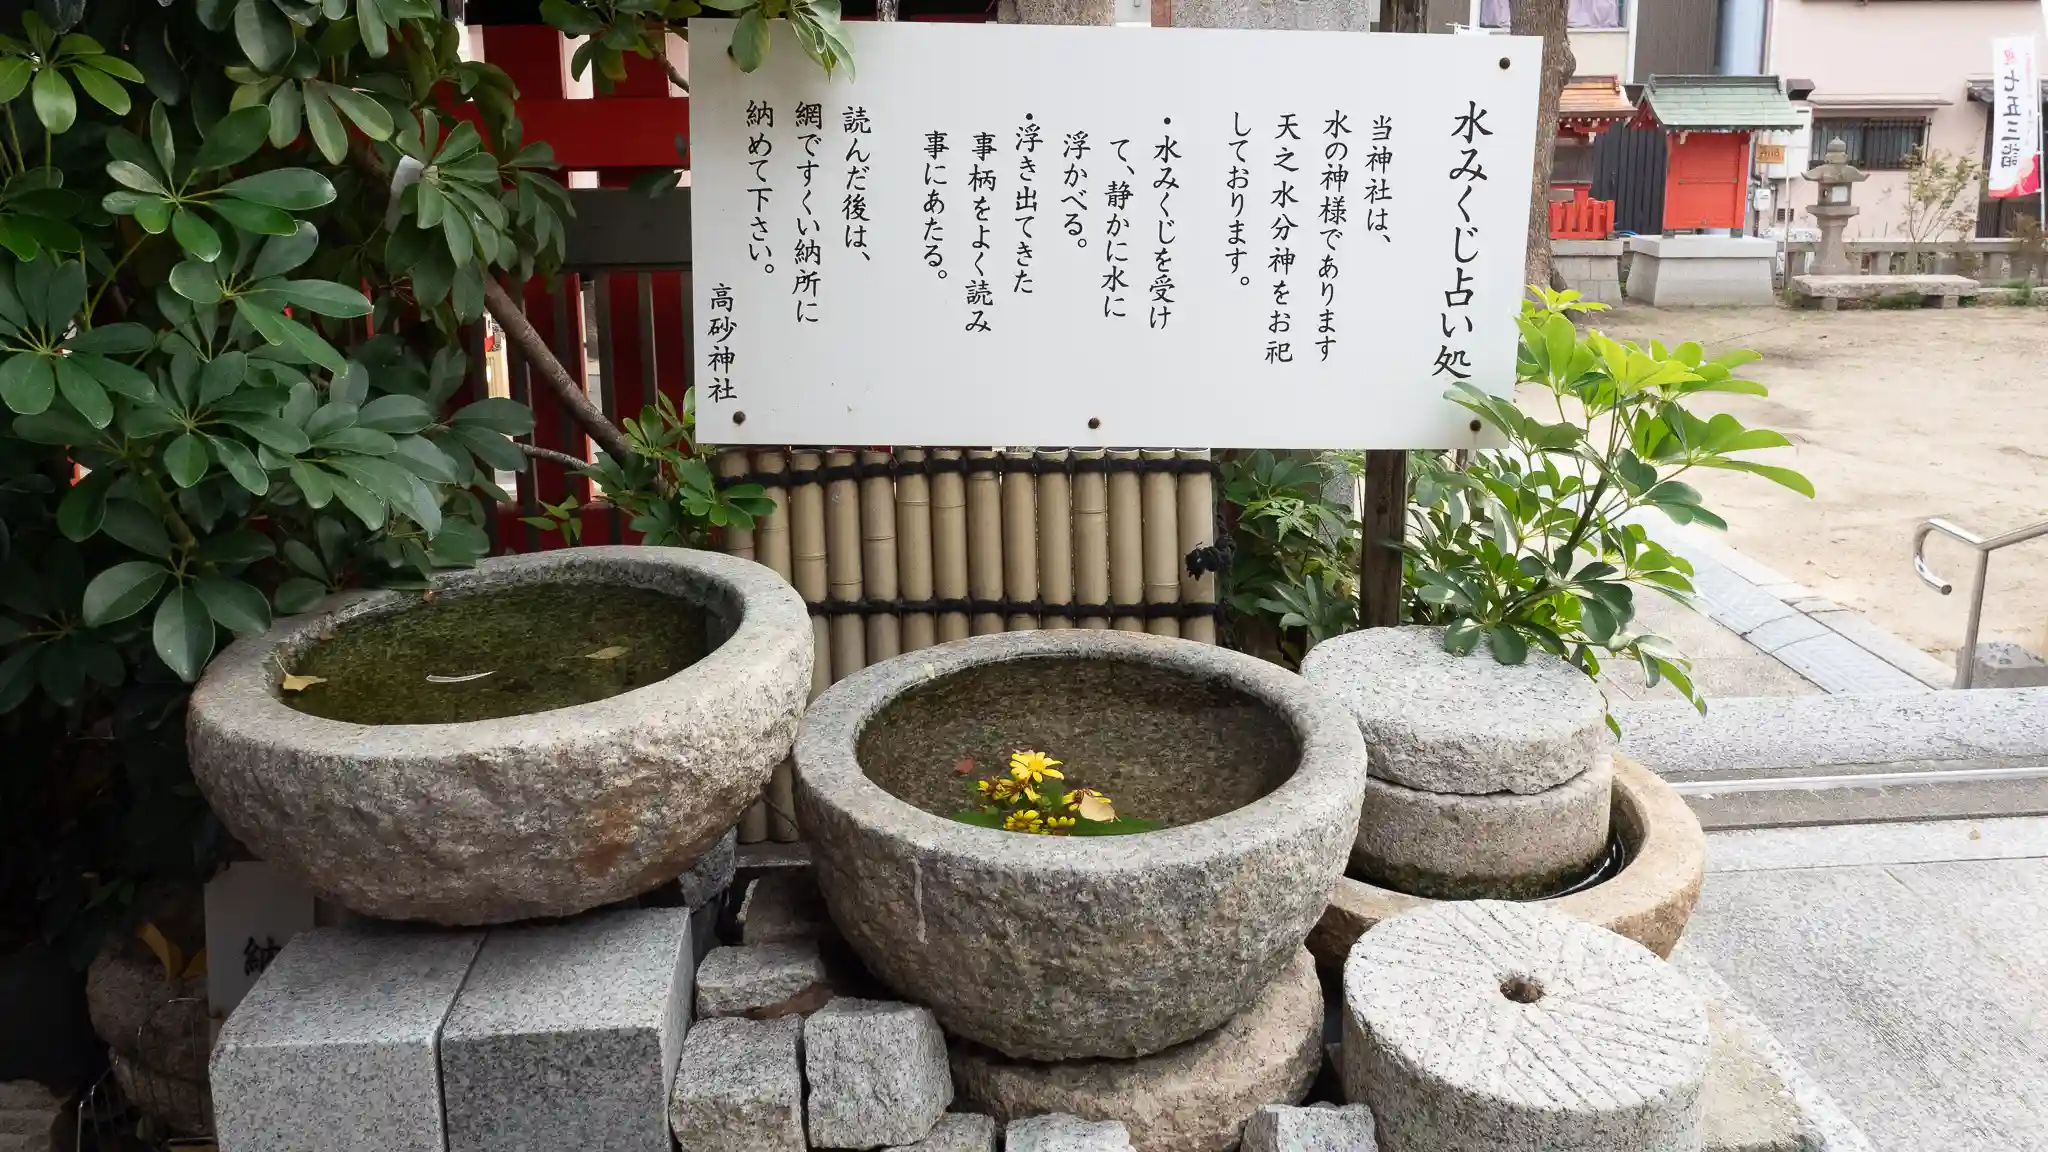 水みくじ占い処
当神社は、
水の神様であります
天之水分神をお祀
しております。
・水みくじを受け
て、静かに水に
浮かべる。
・浮き出てきた
事柄をよく読み
事にあたる。
読んだ後は、
網ですくい納所に
納めて下さい。
高砂神社
七五三詣
納